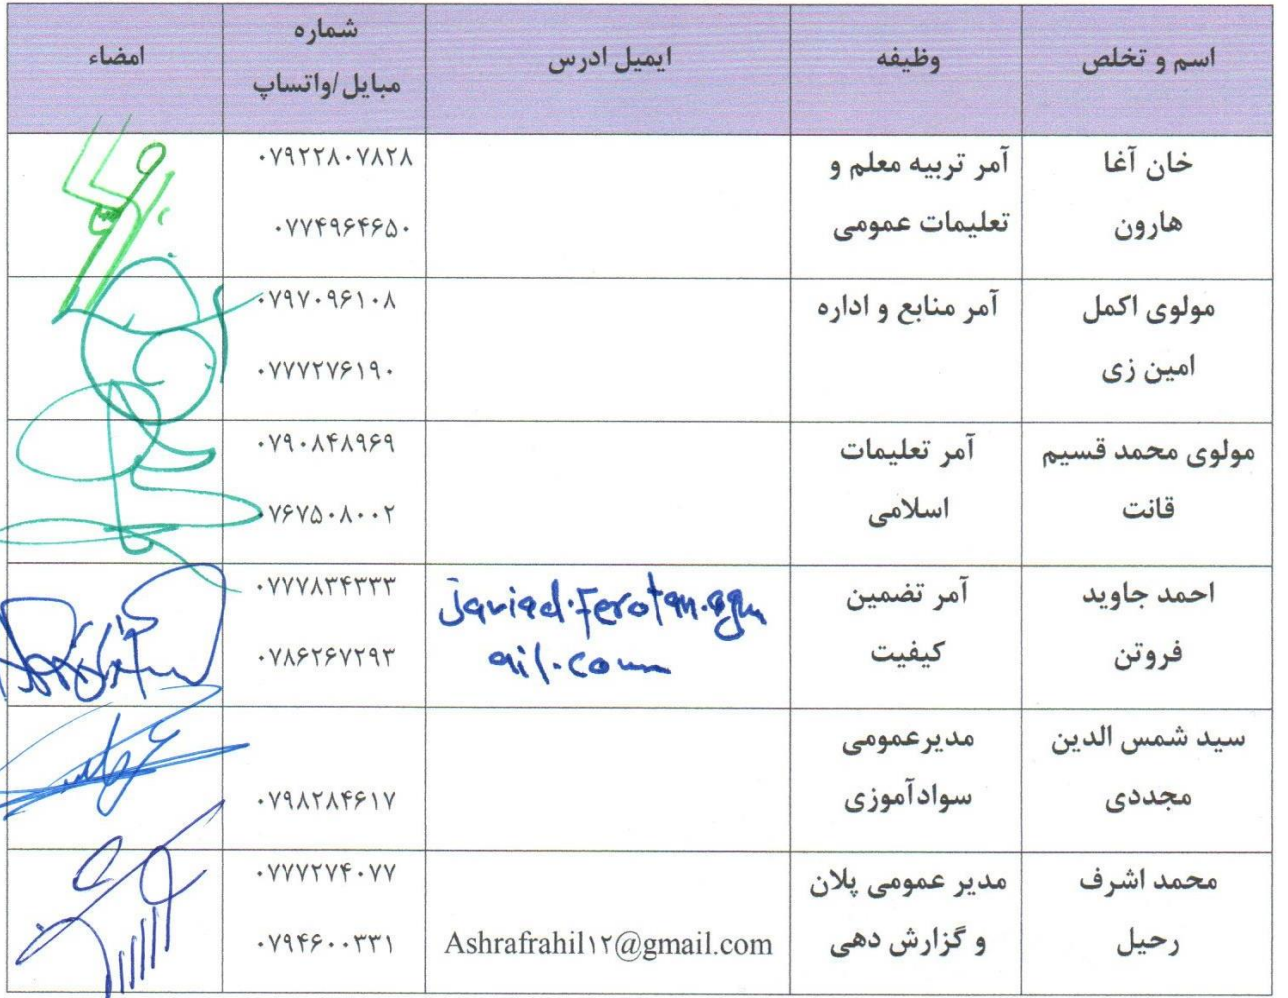 اسم و تخلص
وظیفه
ایمیل ادرس
شماره
مبایل/واتساپ
امضاء
خان آغا
هارون
آمر تربیه معلم و
تعلیمات عمومی
۰۷۹۲۲۸۰۷۸۲۸
۰۷۷۴۹۶۴۶۵۰
مولوی اکمل
امین زی
آمر منابع و اداره
۰۷۹۷۰۹۶۱۰۸
۰۷۷۷۲۷۶۱۹۰
مولوی محمد قسیم
قانت
آمر تعلیمات
اسلامی
۰۷۹۰۸۴۸۹۶۹
۰۷۶۷۵۰۸۰۰۲
احمد جاوید
فروتن
آمر تضمین
کیفیت
javied.Ferotan.@gm
ail.com
۰۷۷۷۸۳۴۳۳۳
۰۷۸۶۲۶۷۲۹۳
سید شمس الدین
مجددی
مدیرعمومی
سوادآموزی
۰۷۹۸۲۸۴۶۱۷
محمد اشرف
رحیل
مدیر عمومی پلان
و گزارش دهی
Ashrafrahil۱۲@gmail.com
۰۷۷۷۲۷۴۰۷۷
۰۷۹۴۶۰۰۳۳۱